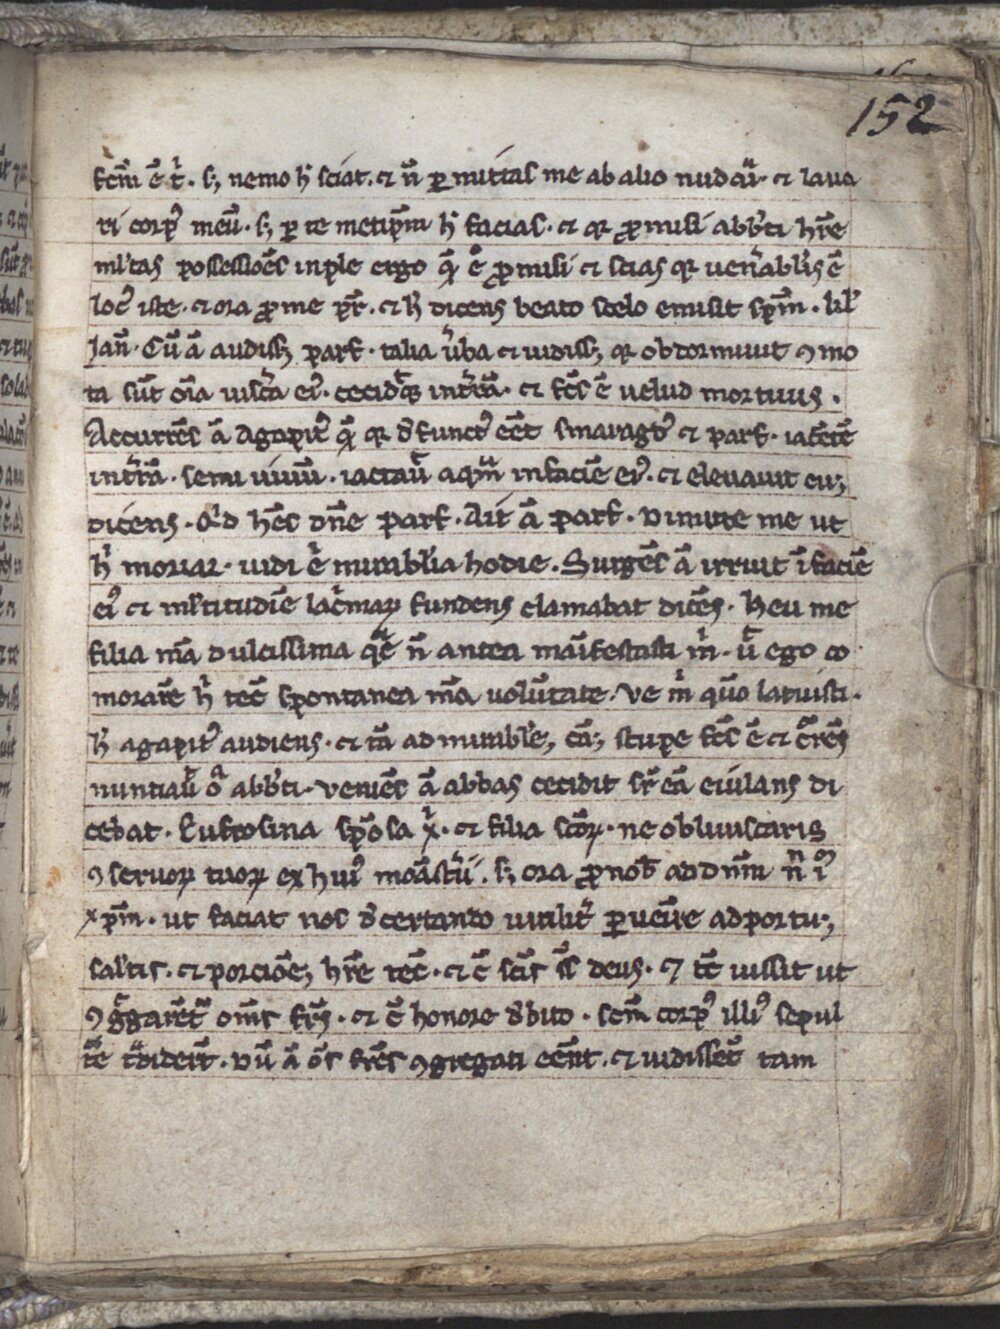 152
fcm̄ ē t̄. s; nemo h̄ sciat. et n̄ ꝑmittas me ab alio nudari. et laua
ri corpꝰ meū. s; ꝑ te metip̄m h̄ facias. et qꝛ ꝓmisi abb̄ti hr̄e
ml̄tas possessiōēs inple ergo qđ ꝓmisi et scias qꝛ uen̄ablis ē
locꝰ iste. et ora ꝓ me pr̄. et h̄ dicens beato sc̄lo emisit sp̄m.
Jan̄. Cū ā audiss; paf. talia ūba et uidiss; qꝛ obdormiuit ꝯmo
ta sūt oīa uisc̄a eiꝰ. ceciditqꝫ in t̄rā. et fc̄s ē uelud mortuus.
Accurrēs ā agapitꝰ qꝛ defunctꝰ eēt smaragdꝰ et paf. iacētē
in t̄rā. semi uiuū. iactauit aqm̄ in faciē eiꝰ. et eleuauit eū;
dicens. Qid hēs dn̄e paf. Ait ā paf. Dimitte me ut
h̄ moriar. uidi ē mirabl̄ia hodie. Surgēs ā irruit ī faciē
eiꝰ et ml̄titudīe lac̄maꝝ fundens clamabat dicēs. Heu me
filia m̄a dulcissima qē n̄ antea maīfestasti m̄. ut ego co
morarē h̄ tecū spontanea m̄a uolūtate. Ve m̄ quō latuisti.
h̄ agapitꝰ audiens. et tā admirabl̄e, cā; stupefc̄s ē et c̄rēs
nuntiauit abb̄ti. Veniēs ā abbas cecidit sr̄ eā eiulans di
cebat. Eufrosina spōsa x̄. et filia sc̄oꝝ. ne obliuiscaris
ꝯseruoꝝ tuoꝝ ex huiꝰ monast̄ii. s; ora ꝓ nob̄ ad dn̄m n̄
xp̄m. ut faciat nos decertando uirilit̄ ꝑuenīre ad portū;
sal̄tis. et porciōē, hr̄e tecū. et cū sc̄is deus. et tē iussit ut
ꝯgregarēt̄ om̄s fr̄s. et cū honore debito. sc̄m corpꝰ illiꝰ sepul
tē t̄diderīt. Dū ā oēs fr̄es ꝯgregati eēnt. et uidissēt tam